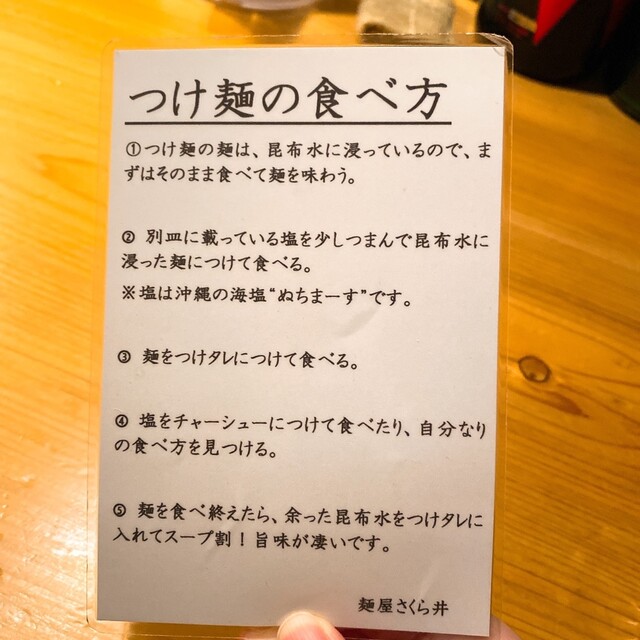 つけ麺の食べ方
①つけ麺の麺は、昆布水に浸っているので、ま
ずはそのまま食べて麺を味わう。
② 別皿に載っている塩を少しつまんで昆布水に
浸った麺につけて食べる。
※塩は沖縄の海塩“ぬちまーす”です。
③ 麺をつけタレにつけて食べる。
④ 塩をチャーシューにつけて食べたり、自分なり
の食べ方を見つける。
⑤ 麺を食べ終えたら、余った昆布水をつけタレに
入れてスープ割！旨味が凄いです。
麺屋さくら井